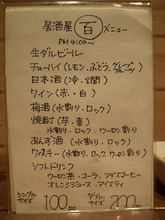 居酒屋 百 メニュー
PM 4:00〜
生ダルビール
チューハイ(レモン、ぶどう、グレープフルーツ)
日本酒(冷・燗)
ワイン(赤・白)
梅酒(水割り・ロック)
焼酎(芋・麦)
水割り・ロック・ウーロン割り
あんず酒(水割り・ロック)
ウィスキー(水割り・ロック・ウーロン割り)
ソフトドリンク
ウーロン茶・コーラ・アイスコーヒー
オレンジジュース・アイスティ
シングルサイズ 100円 ダブルサイズ 200円